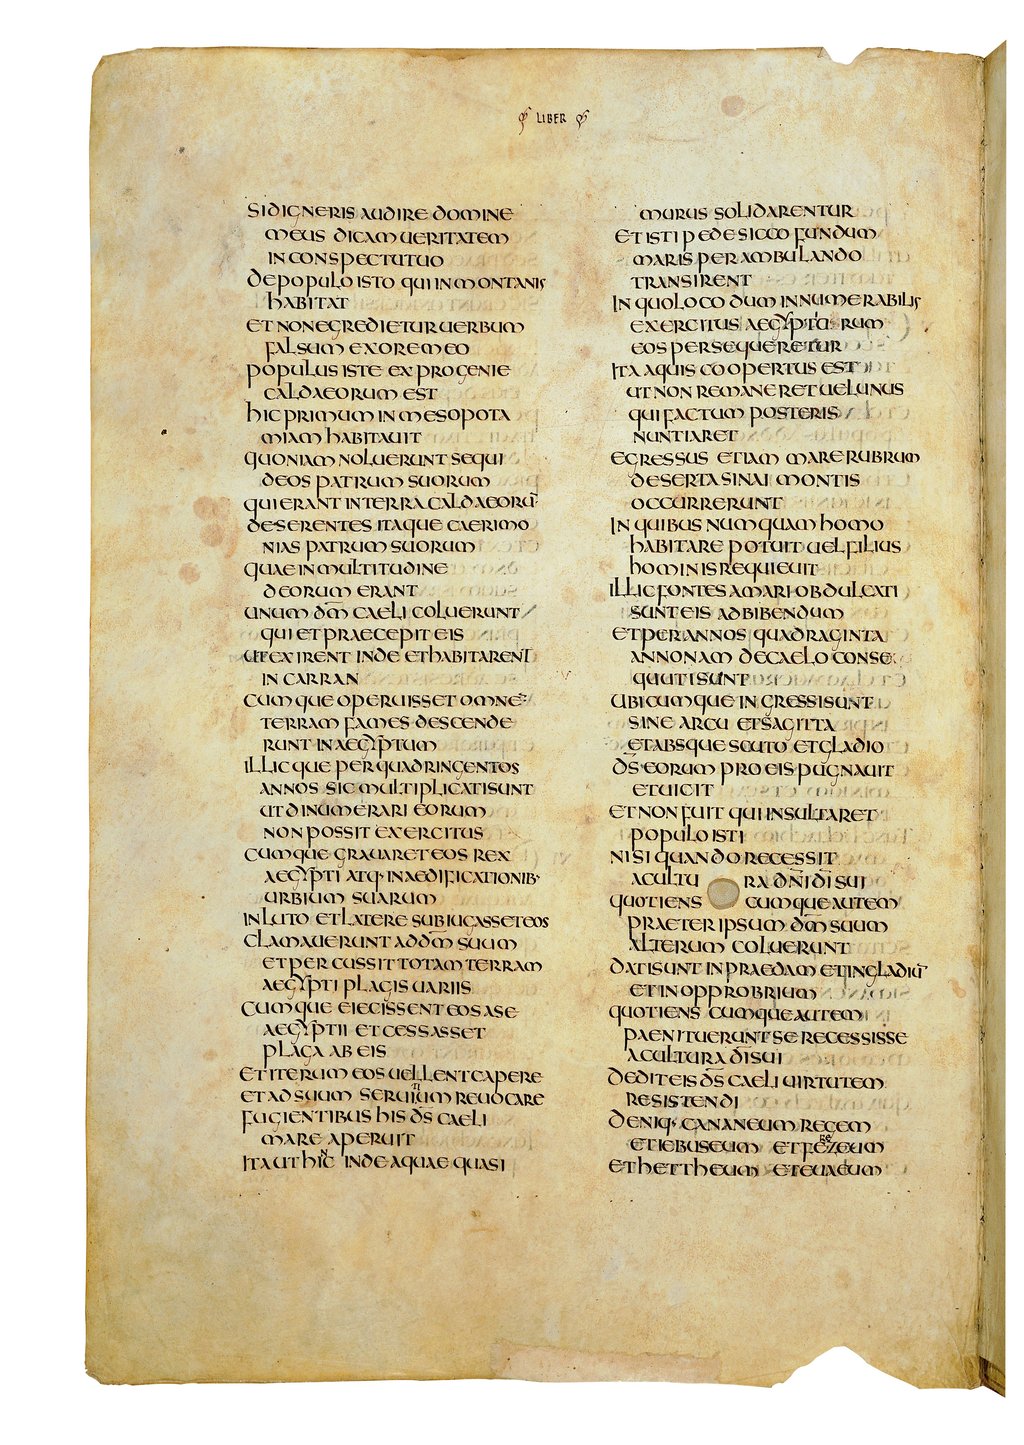 LIBER
SIDIGNERIS AUDIRE DOMINE
MEUS DICAM UERITATEM
INCONSPECTUTUO
DEPOPULO ISTO QUI IN MONTANIS
HABITAT
ET NONEGREDIETUR UERBUM
FALSUM EXOREMEO
POPULUS ISTE EX PROGENIE
CALDAEORUM EST
HIC PRIMUM IN MESOPOTA
MIAM HABITAUIT
QUONIAM NOLUERUNT SEQUI
DEOS PATRUM SUORUM
QUIERANT IN TERRA CALDAEORŪ
DESERENTES ITAQUE CAERIMO
NIAS PATRUM SUORUM
QUAE IN MULTITUDINE
DEORUM ERANT
UNUM DM̄ CAELI COLUERUNT
QUI ET PRAECEPIT EIS
UT EXIRENT INDE ET HABITARENT
IN CARRAN
CUMQUE OPERUISSET OMNE
TERRAM FAMES DESCENDE
RUNT IN AEGYPTUM
ILLICQUE PER QUADRINGENTOS
ANNOS SIC MULTIPLICATI SUNT
UT DINUMERARI EORUM
NON POSSIT EXERCITUS
CUMQUE GRAUARET EOS REX
AEGYPTI ATQ· IN AEDIFICATIONIB·
URBIUM SUARUM
IN LUTO ET LATERE SUBIUGASSET EOS
CLAMAUERUNT AD DM̄ SUUM
ET PERCUSSIT TOTAM TERRAM
AEGYPTI PLAGIS UARIIS
CUMQUE EIECISSENT EOS A SE
AEGYPTII ET CESSASSET
PLAGA AB EIS
ET ITERUM EOS UELLENT CAPERE
ET AD SUUM SERUITIUM REUOCARE
FUGIENTIBUS HIS DS̄ CAELI
MARE APERUIT
ITA UT HINC INDE AQUAE QUASI
MURUS SOLIDARENTUR
ET ISTI PEDE SICCO FUNDUM
MARIS PERAMBULANDO
TRANSIRENT
IN QUO LOCO DUM INNUMERABILIS
EXERCITUS AEGYPTIORUM
EOS PERSEQUERETUR
ITA AQUIS COOPERTUS EST
UT NON REMANERET UEL UNUS
QUI FACTUM POSTERIS
NUNTIARET
EGRESSUS ETIAM MARE RUBRUM
DESERTA SINAI MONTIS
OCCURRERUNT
IN QUIBUS NUMQUAM HOMO
HABITARE POTUIT UEL FILIUS
HOMINIS REQUIEUIT
ILLIC FONTES AMARI OBDULCATI
SUNT EIS AD BIBENDUM
ET PER ANNOS QUADRAGINTA
ANNONAM DE CAELO CONSE
QUUTI SUNT
UBICUMQUE INGRESSI SUNT
SINE ARCU ET SAGITTA
ET ABSQUE SCUTO ET GLADIO
DS̄ EORUM PRO EIS PUGNAUIT
ET UICIT
ET NON FUIT QUI INSULTARET
POPULO ISTI
NISI QUANDO RECESSIT
A CULTU RA DN̄I DĪ SUI
QUOTIENS CUMQUE AUTEM
PRAETER IPSUM DM̄ SUUM
ALTERUM COLUERUNT
DATI SUNT IN PRAEDAM ET IN GLADIŪ
ET IN OPPROBRIUM
QUOTIENSCUMQUE AUTEM
PAENITUERUNT SE RECESSISSE
A CULTURA DĪ SUI
DEDIT EIS DS̄ CAELI UIRTUTEM
RESISTENDI
DENIQ· CANANEUM REGEM
ET IEBUSEUM ET FEREZEUM
ET HETTHEUM ET EUAEUM